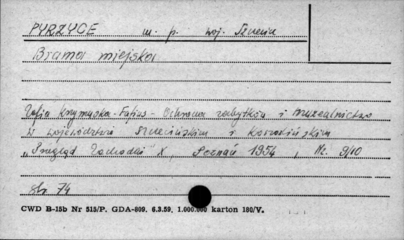 PYRZYCE m. p. woj. Szczecin
Brama miejska
Zofia Krzymuska-Fafius - Ochrona zabytków i muzealnictwo
w województwie Szczecińskim i Koszalińskim
"Przegląd Zachodni" X, Poznań 1954, Nr. 9/10
str. 74
CWD B-15b Nr 515/P. GDA-809. 6.3.59. 1.000.000 karton 180/V.